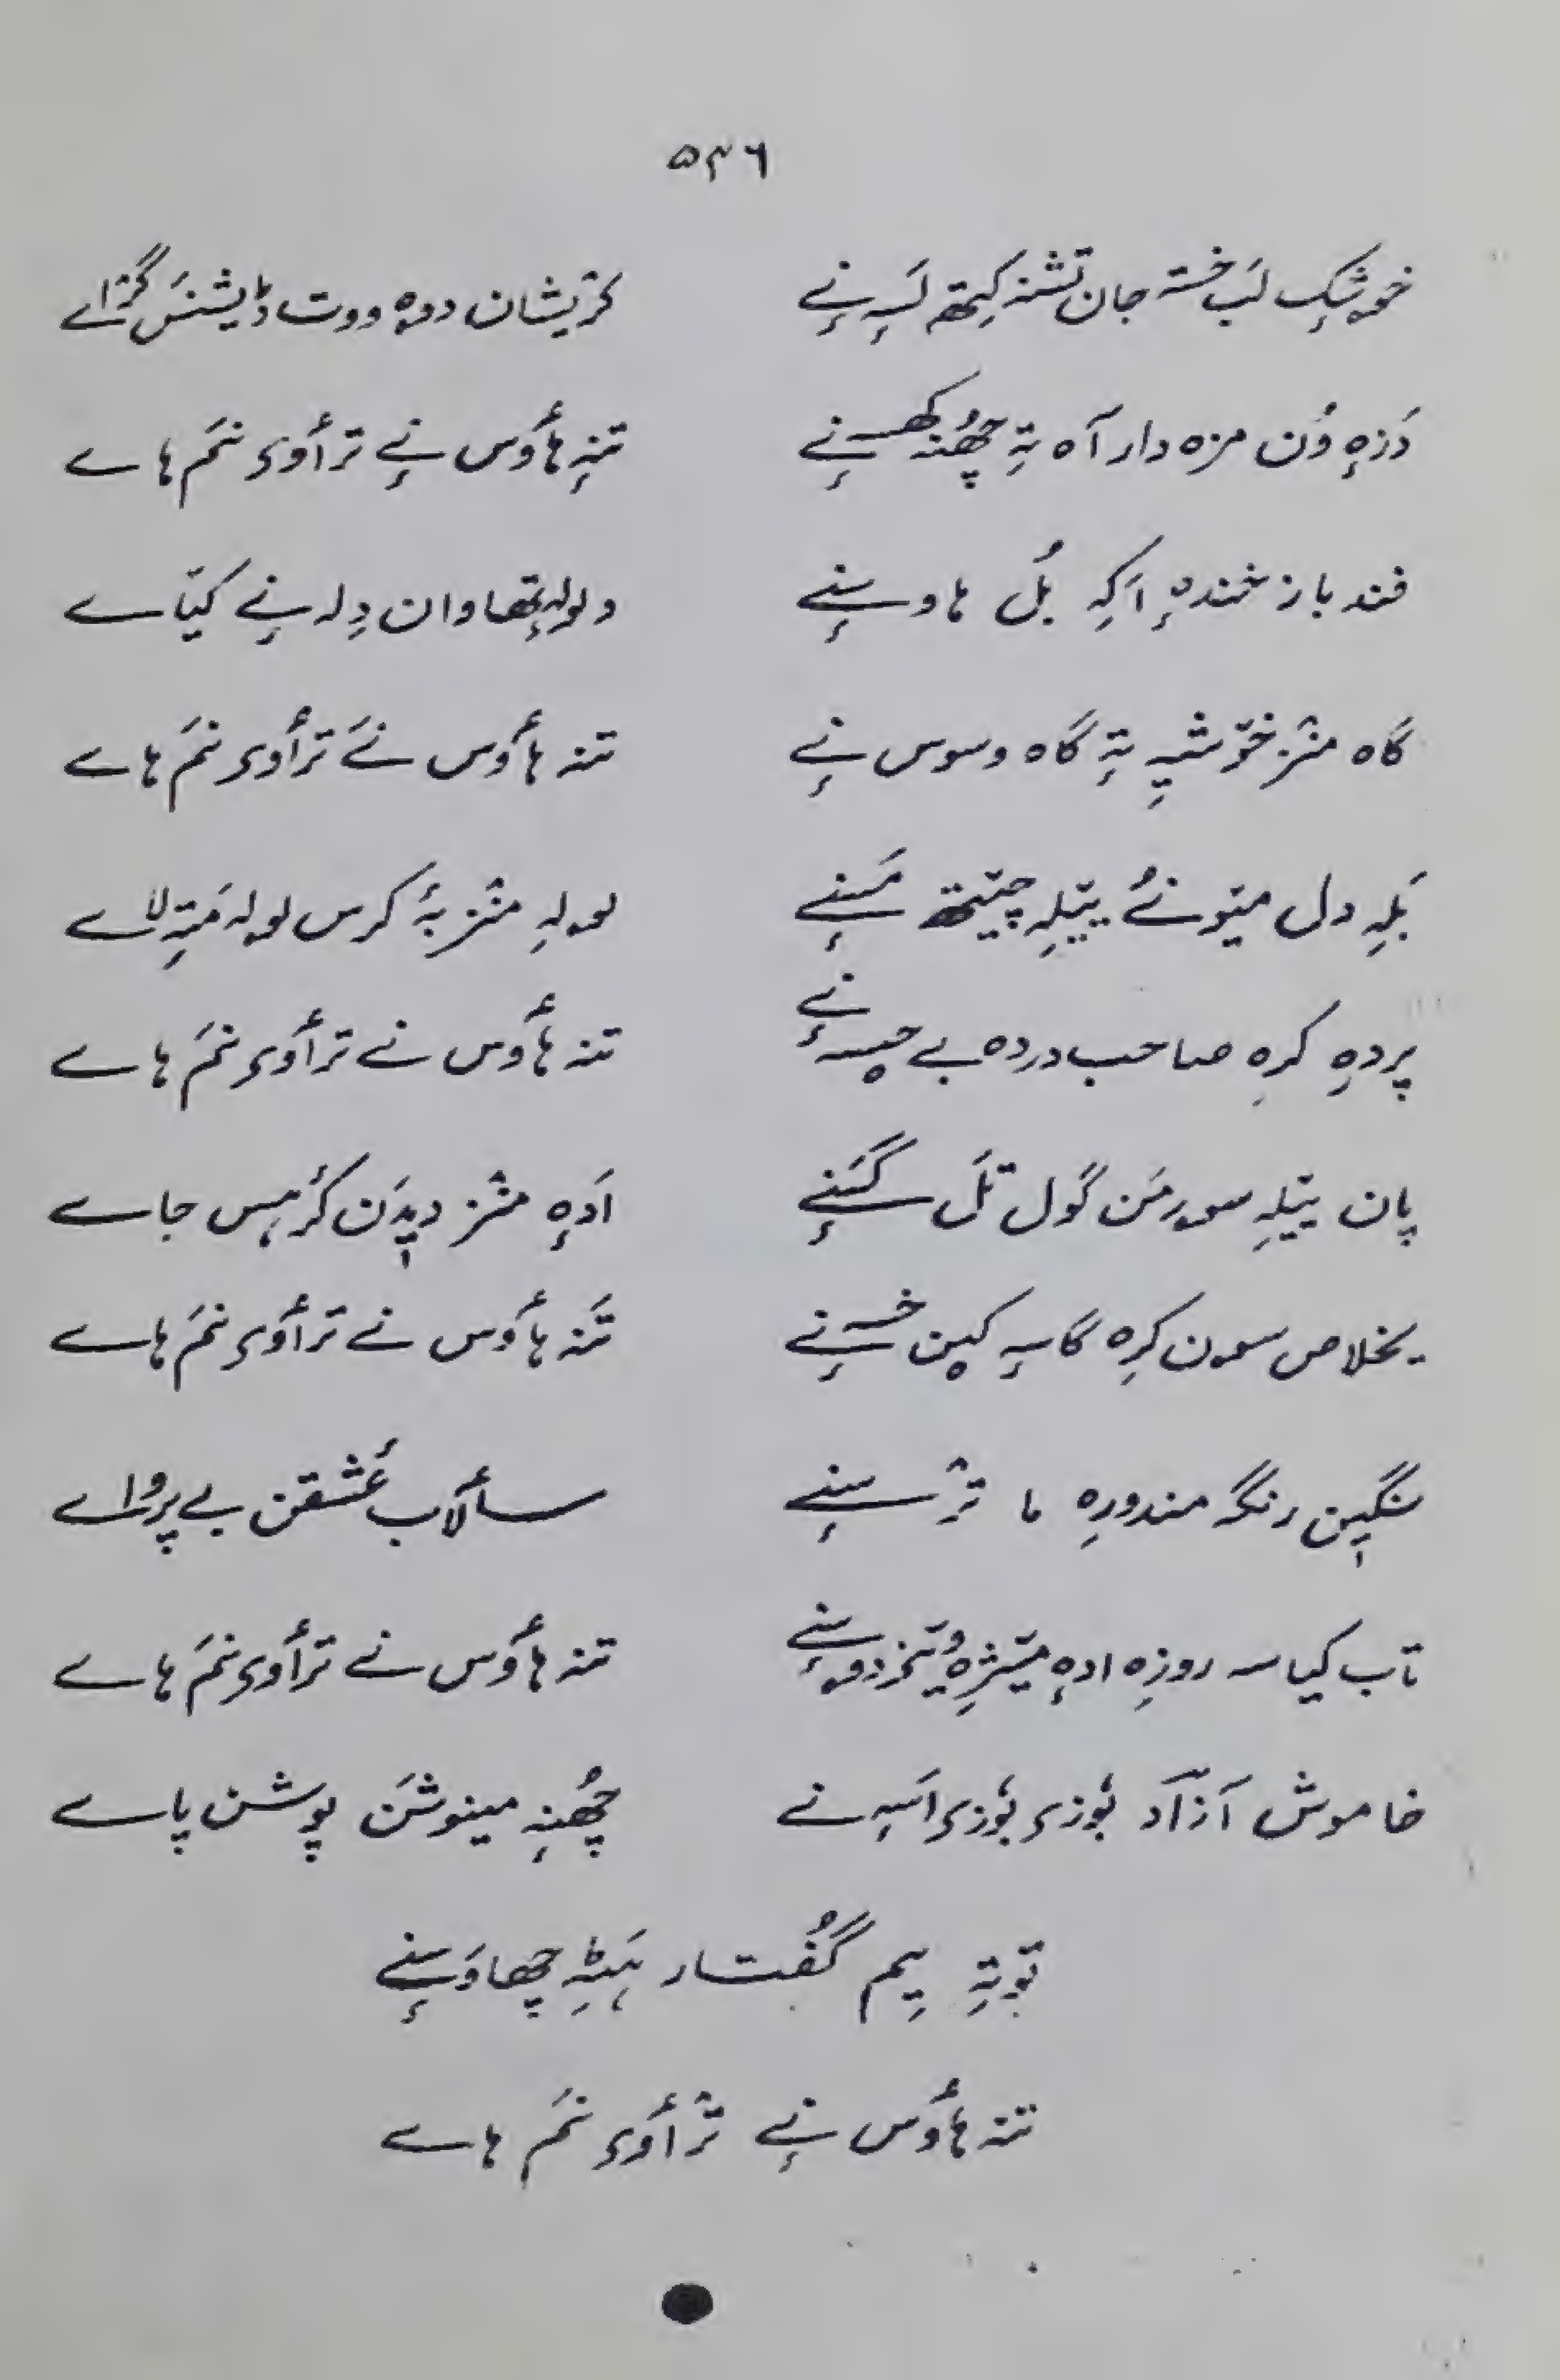 ۵۴۶
خوشک لَب خستہ جان تشنہ کِتھ لَسہِ نے کرٛیشان دوہ ووت ڈیشنَس گرٛاے
دَزہِ وُن مزہ دار آہ تہِ چھُنہ کھسہِ نے تنہِ ہاُوس نے ترٛاُوی نَم ہاے
فند باز خندہِ اَکہِ بُل ہاوسہِ نے ولولہ تھاوان دِلہ نے کیّاے
گاہ منٛز خوٚشیہِ تہِ گاہ وسوس نے تنہ ہاُوس نَے ترٛاُوی نَم ہاے
بَلہِ دل میوٚنُے ییٚلہِ چیٚتھ مَسہِ نے لولہِ منٛز بہٕ کرس لولہ مَتہِ لاے
پردہِ کرِہ صاحب دردہ بے حِسہِ نے تنہ ہاُوس نے ترٛاُوی نَم ہاے
پان ییٚلہِ سورمَن گول تَل گَسہِ نے اَدہِ منٛز دیٖدَن کرٛہس جاے
یخلاص سون کرِہ گاسہِ کین خسہِ نے تَنہ ہاُوس نے ترٛاُوی نَم ہاے
سنگین رنگہ مندورِہ ما ژٕسہِ نے سٲلاب عٔشقن بے پرواے
تاب کیاسہ روزِہ ادہِ تنہ ہاُوس نے ترٛاُوی نَم ہاے
خاموش آزاد بوٗزی بوٗزی اَسہِ نے چھُنہِ مینوشَن پوشن پاے
توٚتہِ یِم گُفتار ہَٹہِ چھاوَسہِ نے
تنہ ہاُوس نے ترٛاُوی نَم ہاے